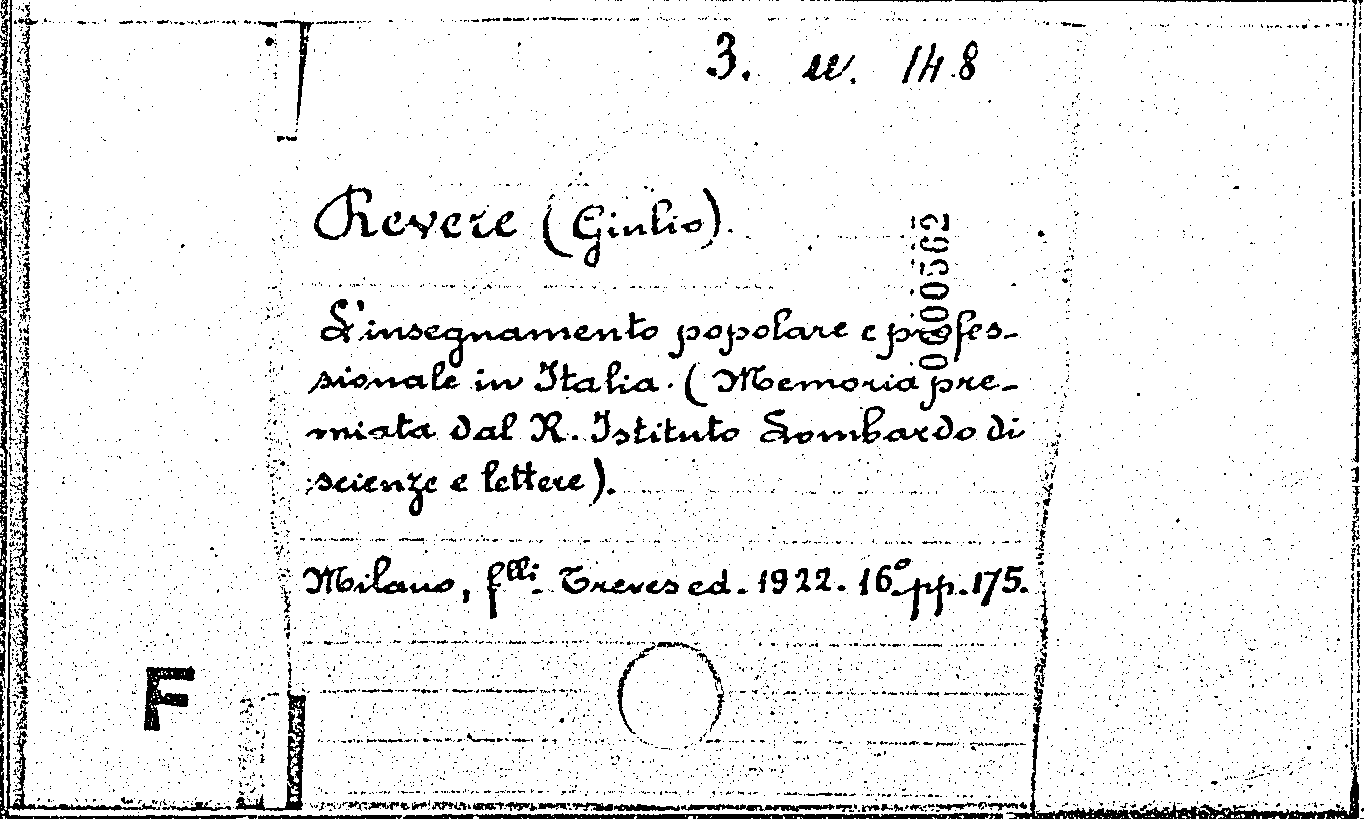 3. w. 148
Revere (Giulio).
0600562
L'insegnamento popolare e profes-
sionale in Italia. (Memoria pre-
miata dal R. Istituto Lombardo di
scienze e lettere).
Milano, f.lli Treves ed. 1922. 16° pp. 175.
F